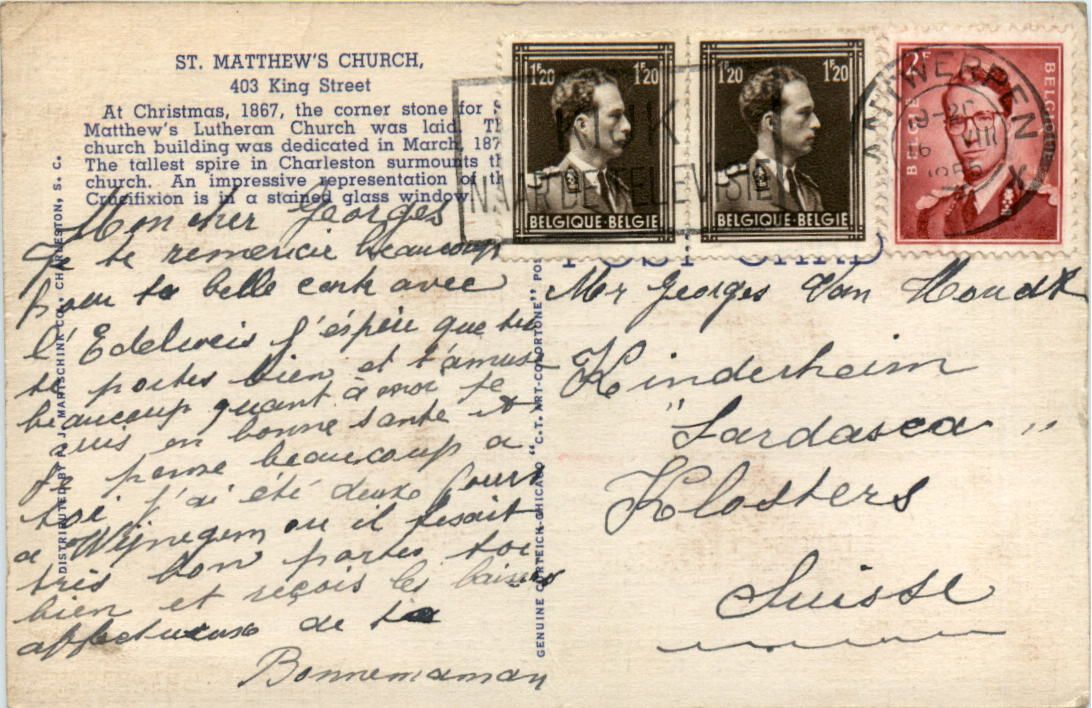 ST. MATTHEW'S CHURCH,
403 King Street
At Christmas, 1867, the corner stone for S
Matthew's Lutheran Church was laid. Th
church building was dedicated in March, 187
The tallest spire in Charleston surmounts th
church. An impressive representation of th
Crucifixion is in a stained glass window.
Mon cher Georges
Je te remercie beaucoup
pour ta belle carte avec
l'Edelweis j'éspère que tu
te portes bien et t'amuse
beaucoup quant à moi je
suis en bonne santé et
je pense beaucoup a
toi j'ai été deux jours
a Wijnegem ou il fesait
très bon portes toi
bien et reçois les baisers
affectueuse de ta
Bonnemaman
DISTRIBUTED BY A. J. MARSCHINK CO., CHARLESTON, S. C.
GENUINE CURTEICH-CHICAGO "C.T. ART-COLORTONE" POS
POST CARD
1F20 1F20
BELGIQUE-BELGIE
1F20 1F20
BELGIQUE-BELGIE
2F
BELGIE
BELGIQUE
KIJK
NAAR DE TELEVISIE
ANTWERPEN X
Mr Georges Van Houdt
Kinderheim
"Sardasca"
Klosters
Suisse